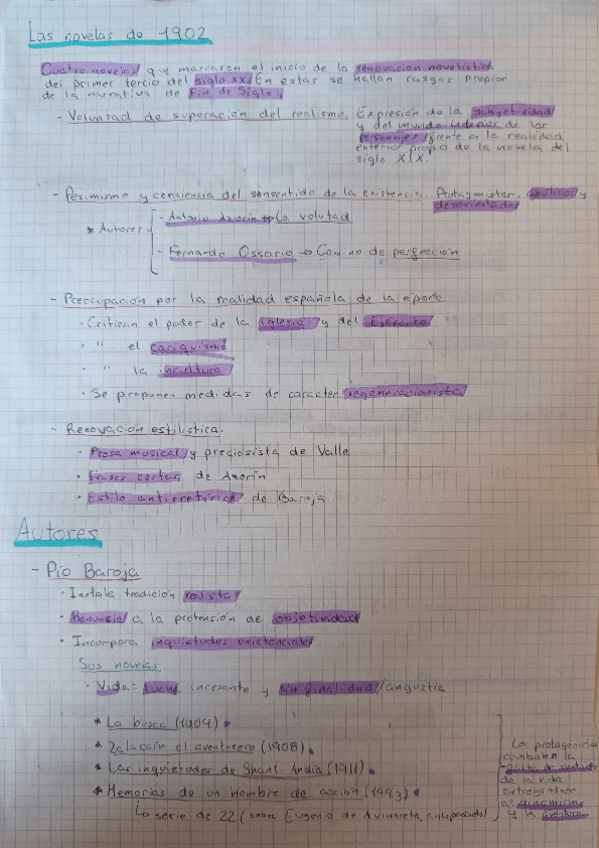 Las novelas de 1902
Cuatro novelas que marcaron el inicio de la renovación novelística
del primer tercio del siglo xx. En estas se hallan rasgos propios
de la narrativa de Fin de Siglo:
- Voluntad de superación del realismo. Expresión de la subjetividad
y del mundo interior de los
personajes, frente a la realidad
exterior propio de la novela del
siglo XIX.
- Pesimismo y conciencia del sinsentido de la existencia. Protagonistas abúlicos y
desorientados
* Autores
- Antonio Azorín → La volutad
- Fernando Ossorio → Camino de perfección
- Preocupación por la realidad española de la época
· Critican el poder de la iglesia y del Ejército
· " el caciquismo
· " la incultura
· Se proponen medidas de caracter regeneracionista
- Renovación estilística.
· Prosa musical y preciosista de Valle
· Frases cortas de Azorín
· Estilo antirretórico de Baroja
Autores
- Pío Baroja
· Instala tradición realista
· Renuncia a la pretensión de objetividad
· Incorpora inquietudes existenciales
Sus novelas
· Vida= lucha incesante y sin finalidad/angustia
* La busca (1904)
* Zalacaín el aventurero (1908)
* Las inquietudes de Shanti Andía (1911)
* Memorias de un hombre de acción (1993)
↳ serie de 22 (sobre Eugenio de Avinareta, antepasado)
Los protagonistas
combaten la
falta de sentido
de la vida
entregándose
al dinamismo
y la aventura